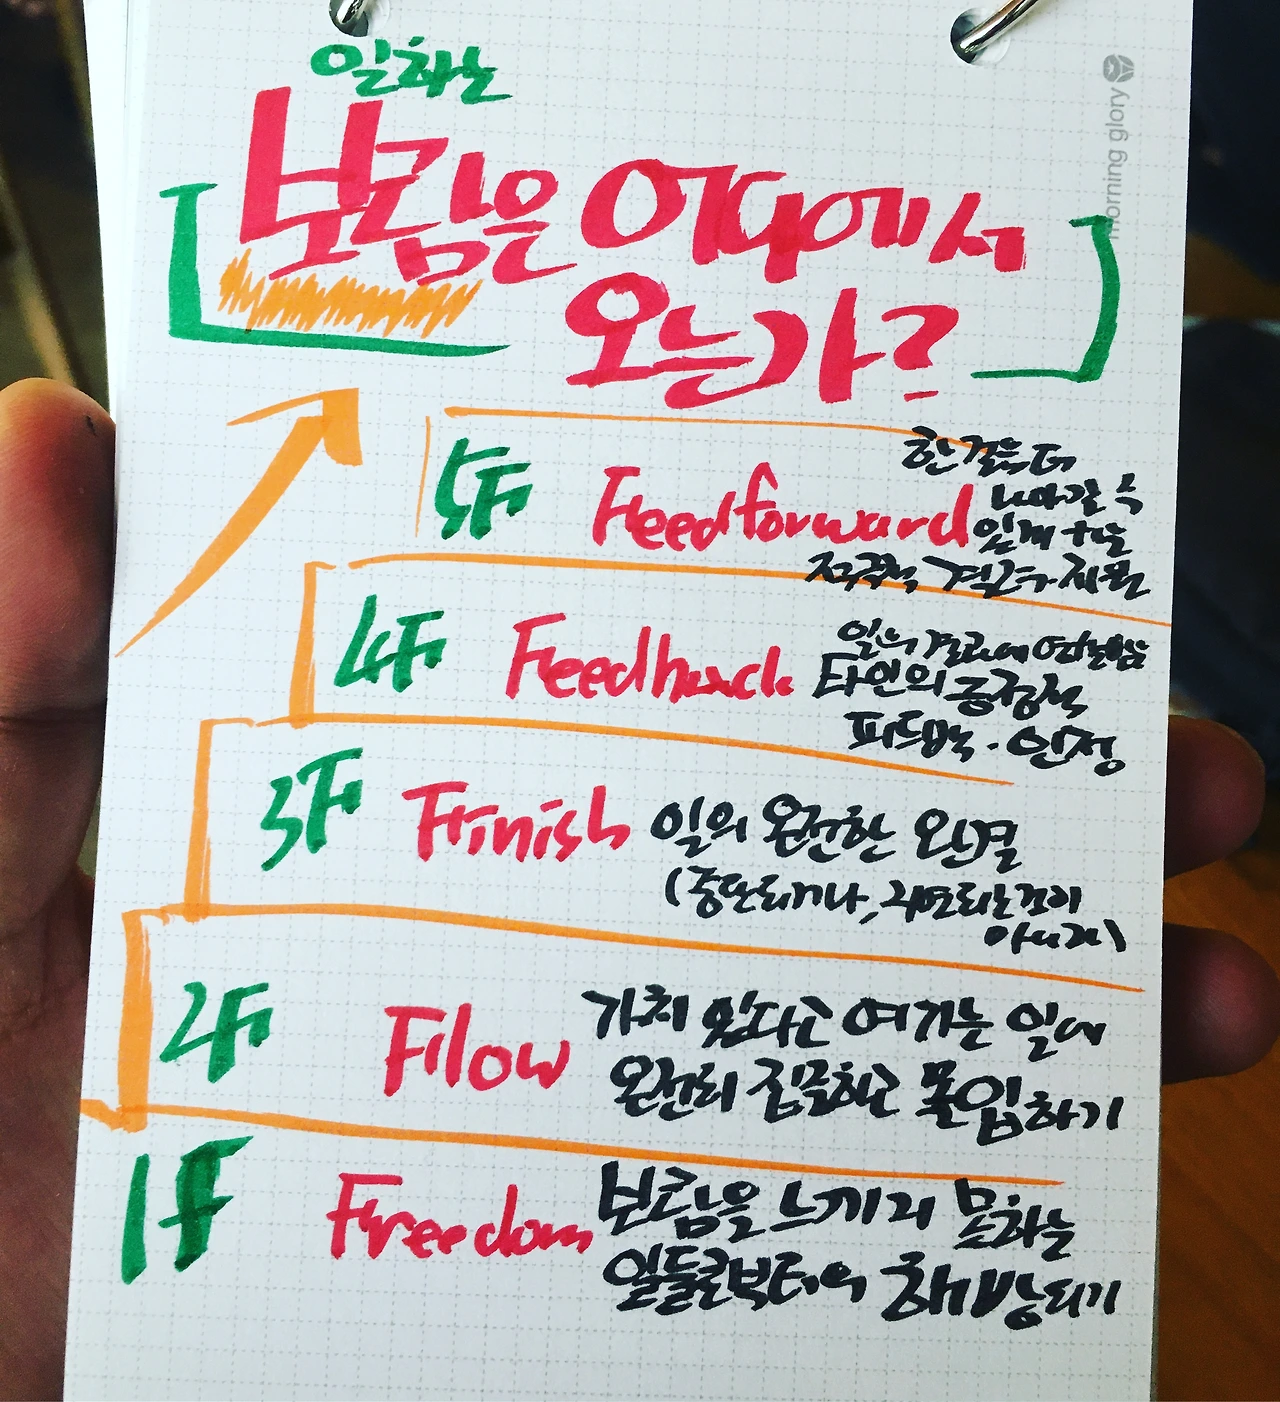 일하는
보람은 어디에서
오는가?
morning glory
5F Feedforward 한걸음 더
나아갈 수
있게 하는
적극적 격려와 지원
4F Feedback 일의 결과에 어울리는
타인의 긍정적
피드백·인정
3F Finish 일의 완전한 완결
(중단되거나, 지연되는 것이
아니라)
2F Flow 가치 있다고 여기는 일에
완전히 집중하고 몰입하기
1F Freedom 보람을 느끼지 못하는
일들로부터의 해방되기